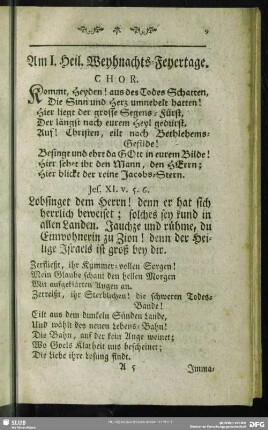 9
Am I. Heil. Weyhnachts-Feyertage.
CHOR.
Kommt, Heyden! aus des Todes Schatten,
Die Sinn und Herz umnebelt hatten!
Hier lieget der grosse Segens-Fürst,
Der längst nach eurem Heyl gedürst.
Auf! Christen, eilt nach Bethlehems-
Gefilde!
Besingt und ehrt da GOtt in eurem Bilde!
Hier sehet ihr den Mann, den HErrn;
Hier blickt der reine Jacobs-Stern.
Jes. XI. v. 5. 6.
Lobsinget dem Herrn! denn er hat sich
herrlich beweiset; solches sey kund in
allen Landen. Jauchze und rühme, du
Einwohnerin zu Zion! denn der Hei-
lige Israels ist groß bey dir.
Zerfließt, ihr Kummer-vollen Sorgen!
Mein Glaube schaut den hellen Morgen
Mit aufgeklärten Augen an.
Zerreißt, ihr Sterblichen! die schweren Todes-
Bande!
Eilt aus dem dunkeln Sünden Lande,
Und wählt des neuen Lebens-Bahn!
Die Bahn, auf der kein Auge weinet;
Wo Goels Klarheit uns bescheinet;
Die Liebe ihre Losung findt.
A 5
Imma-
SLUB
DFG